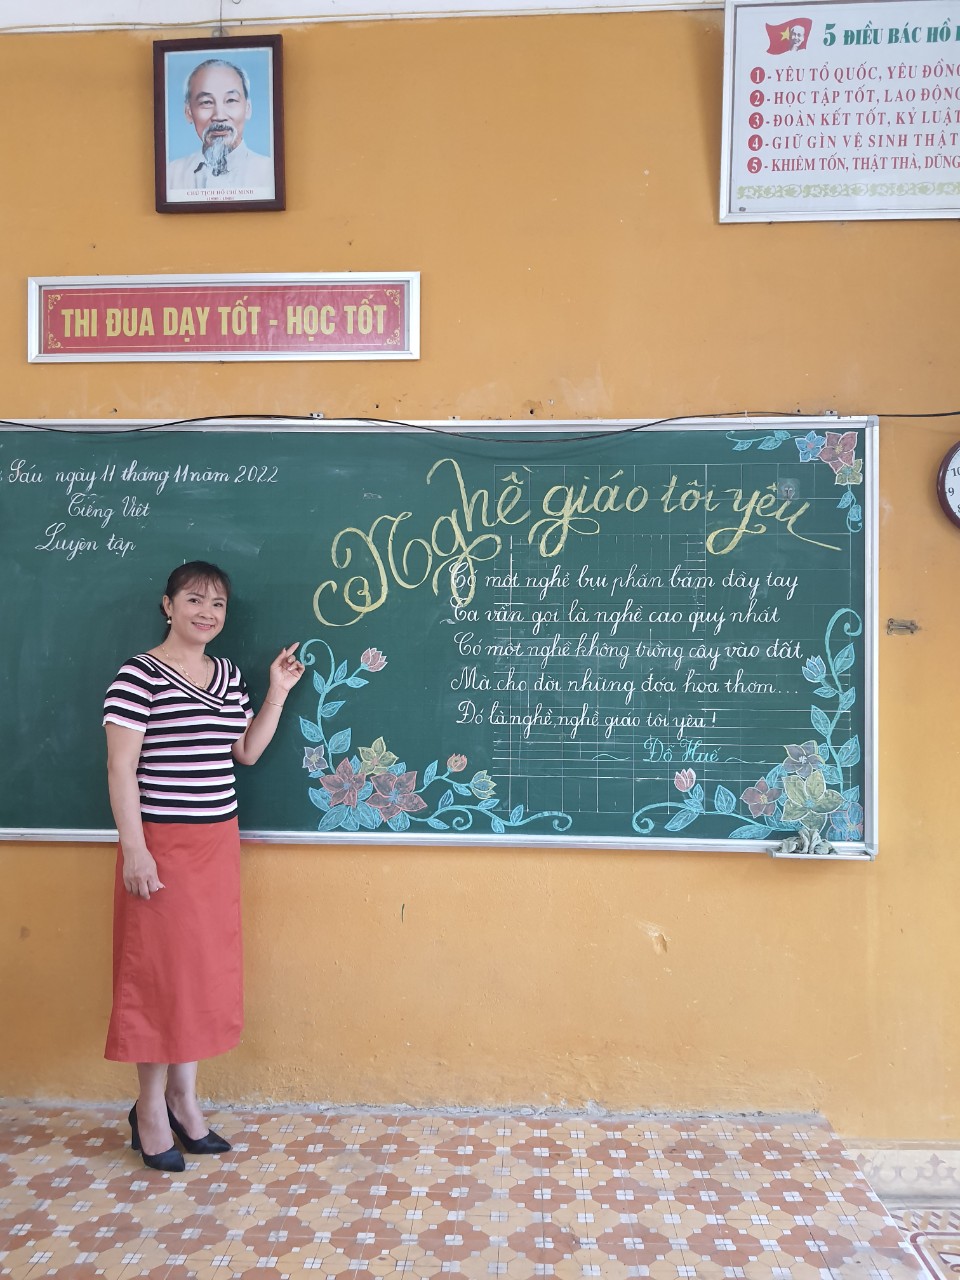 5 ĐIỀU BÁC HỒ
1 - YÊU TỔ QUỐC, YÊU ĐỒNG
2 - HỌC TẬP TỐT, LAO ĐỘNG
3 - ĐOÀN KẾT TỐT, KỶ LUẬT
4 - GIỮ GÌN VỆ SINH THẬT
5 - KHIÊM TỐN, THẬT THÀ, DŨNG
CHỦ TỊCH HỒ CHÍ MINH
THI ĐUA DẠY TỐT - HỌC TỐT
Sáu ngày 11 tháng 11 năm 2022
Tiếng Việt
Luyện tập
Nghề giáo tôi yêu
Có một nghề bụi phấn bám đầy tay
Ta vẫn gọi là nghề cao quý nhất
Có một nghề không trồng cây vào đất
Mà cho đời những đóa hoa thơm...
Đó là nghề, nghề giáo tôi yêu!
Đỗ Huế
10
9
8